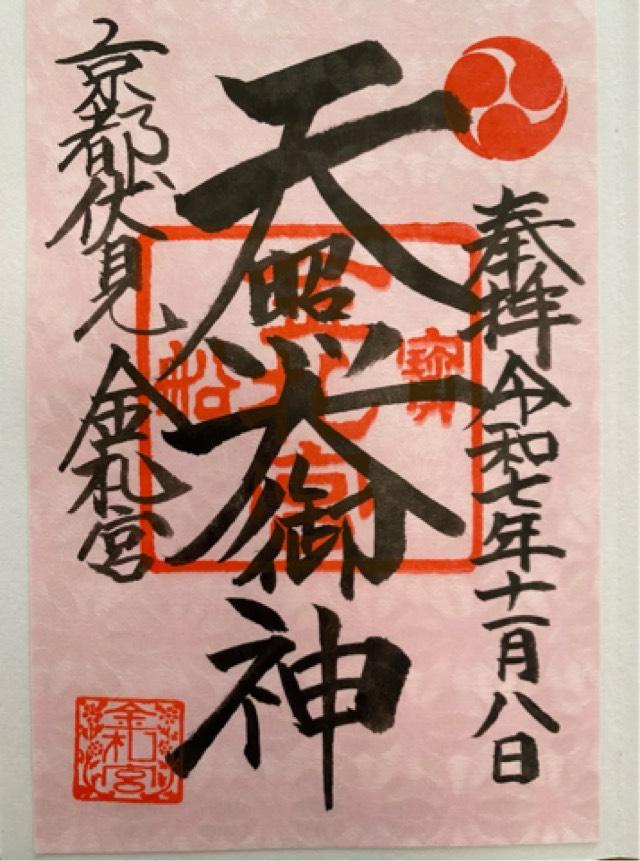 奉拝 令和七年十一月八日
天照大御神
京都伏見 金札宮
寳
金札宮
船
金札宮